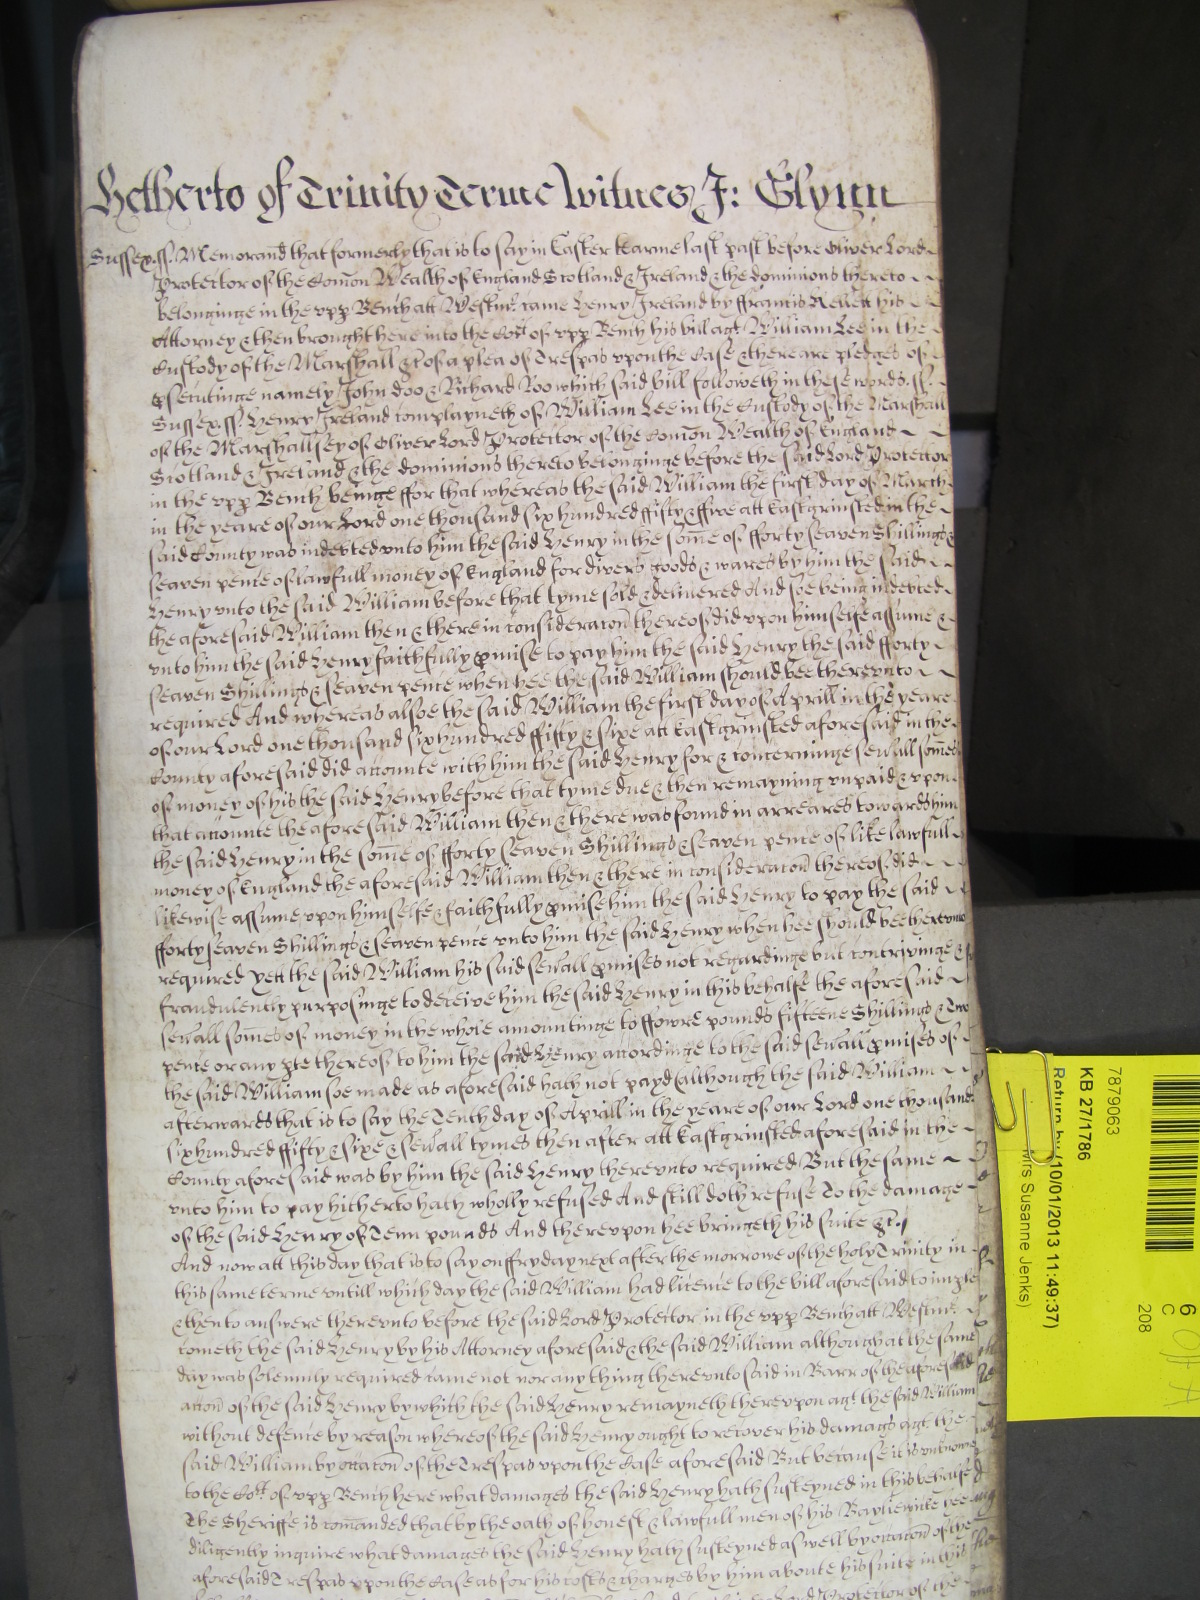 Hetherto of Trinity Terme Witnes J: Glynn
Sussex. ss. Memorand that formerly that is to say in Easter tearme last past before Oliver Lord
Protector of the Com̄on Wealth of England Scotland & Ireland & the dominions thereto
belonginge in the upp Bench att Westm̄r came Henry Ireland by ffrancis Kellett his
Attorney & then brought here into the Cort of upp Bench his bill agt William Lee in the
Custody of the Marshall &c of a plea of Trespas upon the Case & there are pledges of
psecutinge namely John Doo & Richard Roo which said bill followeth in these words. ss.
Sussex. ss. Henry Ireland complayneth of William Lee in the Custody of the Marshall
of the Marshallsey of Oliver Lord Protector of the Com̄on Wealth of England
Scotland & Ireland & the dominions thereto belonginge before the said Lord Protector
in the upp Bench beinge ffor that whereas the said William the first day of March
in the yeare of our Lord one thousand six hundred ffifty & ffive att Eastgrinsted in the
said County was indebted unto him the said Henry in the som̄e of fforty seaven Shillings &
seaven pence of lawfull money of England for divers goods & wares by him the said
Henry unto the said William before that tyme sold & delivered And soe being indebted
the aforesaid William then & there in consideracōn thereof did upon himselfe assume &
unto him the said Henry faithfully pmise to pay him the said Henry the said fforty
seaven Shillings & seaven pence when hee the said William should bee thereunto
required And whereas alsoe the said William the first day of Aprill in the yeare
of our Lord one thousand six hundred ffifty & sixe att Eastgrinsted aforesaid in the
County aforesaid did accounte with him the said Henry for & concerninge sev̄all som̄es
of money of his the said Henry before that tyme due & then remayning unpaid & upon
that accounte the aforesaid William then & there was found in arreares towards him
the said Henry in the som̄e of fforty seaven Shillings & seaven pence of like lawfull
money of England the aforesaid William then & there in consideracōn thereof did
likewise assume upon himselfe & faithfully pmise him the said Henry to pay the said
fforty seaven Shillings & seaven pence unto him the said Henry when hee should bee thereunto
required yett the said William his said sev̄all pmises not regardinge but contrivinge &
fraudulently purposinge to deceive him the said Henry in this behalfe the aforesaid
sev̄all som̄es of money in the whole amountinge to ffowre pounds fifteene Shillings & Two
pence or any pte thereof to him the said Henry accordinge to the said sev̄all pmises of
the said William soe made as aforesaid hath not payd (although the said William
afterwards that is to say the Tenth day of Aprill in the yeare of our Lord one thousand
six hundred ffifty & sixe & sev̄all tymes then after att Eastgrinsted aforesaid in the
County aforesaid was by him the said Henry thereunto required But the same
unto him to pay hitherto hath wholly refused And still doth refuse To the damage
of the said Henry of Tenn pounds And thereupon hee bringeth his suite &c.
And now att this day that is to say on ffryday next after the morrowe of the holy Trinity in
this same terme untill which day the said William had licence to the bill aforesaid to imple
& then to answere thereunto before the said Lord Protector in the upp Bench att Westm̄r
cometh the said Henry by his Attorney aforesaid & the said William although at the same
day was solemnly required came not nor any thing thereunto said in Barr of the aforesaid
accōn of the said Henry by which the said Henry remayneth thereupon agt the said William
without defence by reason whereof the said Henry ought to recover his damags agt the
said William by occacōn of the Trespas upon the Case aforesaid But because it is unknowne
to the Cort of upp Bench here what damages the said Henry hath susteyned in this behalfe
The Sheriffe is com̄anded that by the oath of honest & lawfull men of his Bayliewicke hee
diligently inquire what damages the said Henry hath susteyned as well by occacōn of the
aforesaid Trespas upon the Case as for his costs & charges by him aboute his suite in this
Lord Protector of the
7879063
KB 27/1786
Return by (10/01/2013 11:49:37)
Mrs Susanne Jenks)
6
C
208